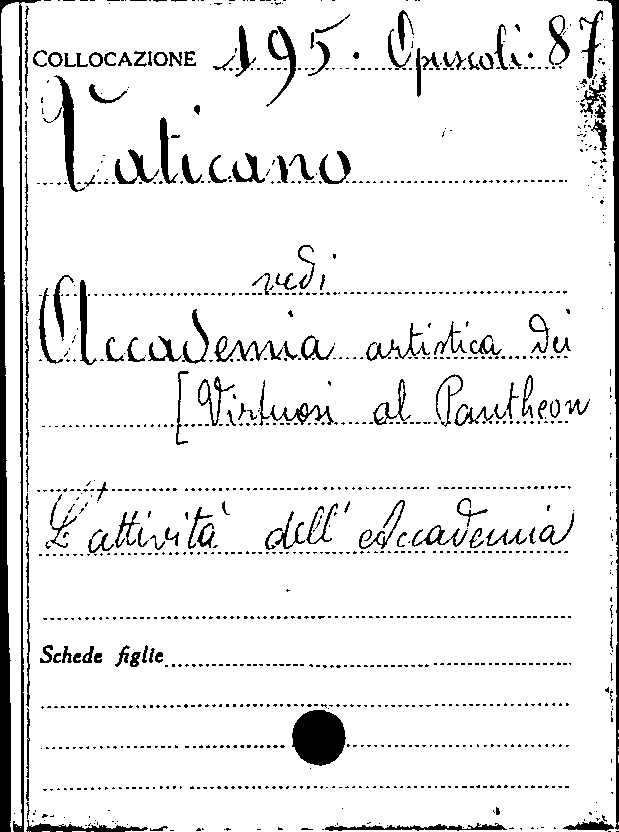 COLLOCAZIONE 195. Opuscoli. 87
Vaticano
vedi
Accademia artistica dei
[Virtuosi al Pantheon
L'attività dell'Accademia
Schede figlie